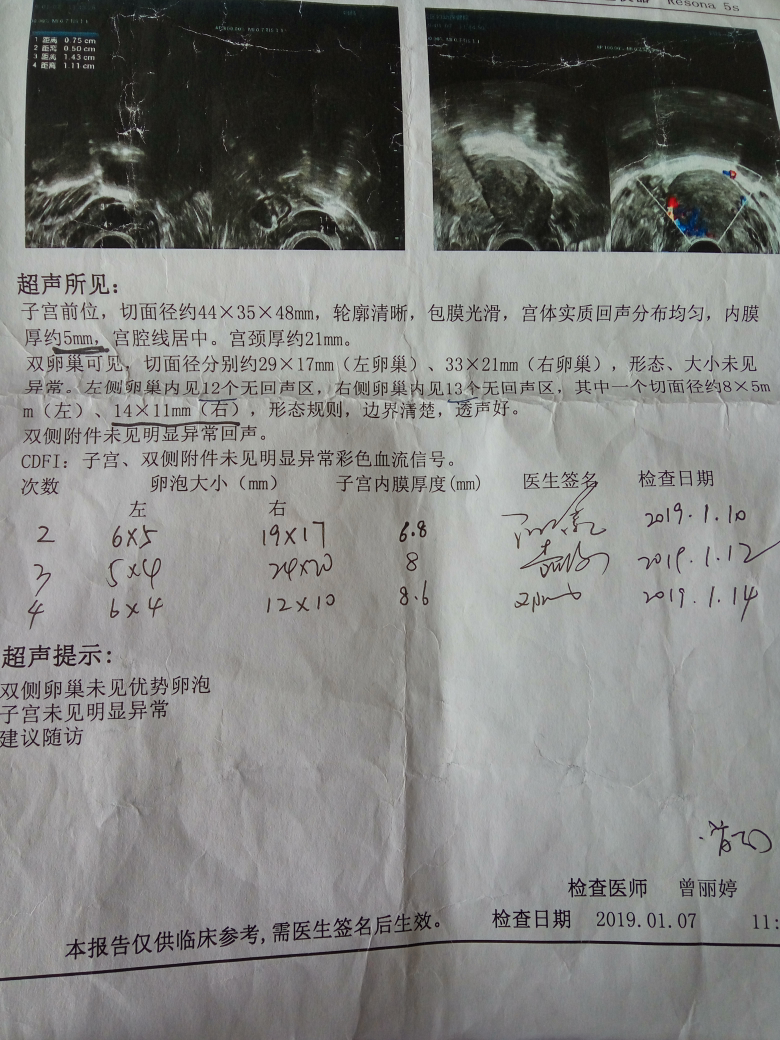 Resona 5s
1 距离 0.75 cm
2 距离 0.50 cm
3 距离 1.43 cm
4 距离 1.11 cm
超声所见：
子宫前位，切面径约44×35×48mm，轮廓清晰，包膜光滑，宫体实质回声分布均匀，内膜
厚约5mm，宫腔线居中。宫颈厚约21mm。
双卵巢可见，切面径分别约29×17mm（左卵巢）、33×21mm（右卵巢），形态、大小未见
异常。左侧卵巢内见12个无回声区，右侧卵巢内见13个无回声区，其中一个切面径约8×5m
m（左）、14×11mm（右），形态规则，边界清楚，透声好。
双侧附件未见明显异常回声。
CDFI：子宫、双侧附件未见明显异常彩色血流信号。
次数 卵泡大小（mm） 子宫内膜厚度(mm) 医生签名 检查日期
左 右
2 6×5 19×17 6.8 2019.1.10
3 5×4 24×20 8 2019.1.12
4 6×4 12×10 8.6 2019.1.14
超声提示：
双侧卵巢未见优势卵泡
子宫未见明显异常
建议随访
检查医师 曾丽婷
本报告仅供临床参考,需医生签名后生效。 检查日期 2019.01.07 11: